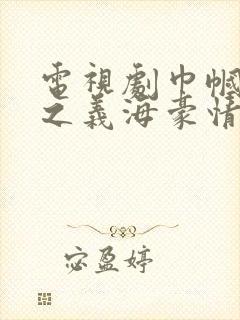 電視劇巾幗
之義海豪情
宓盈婷